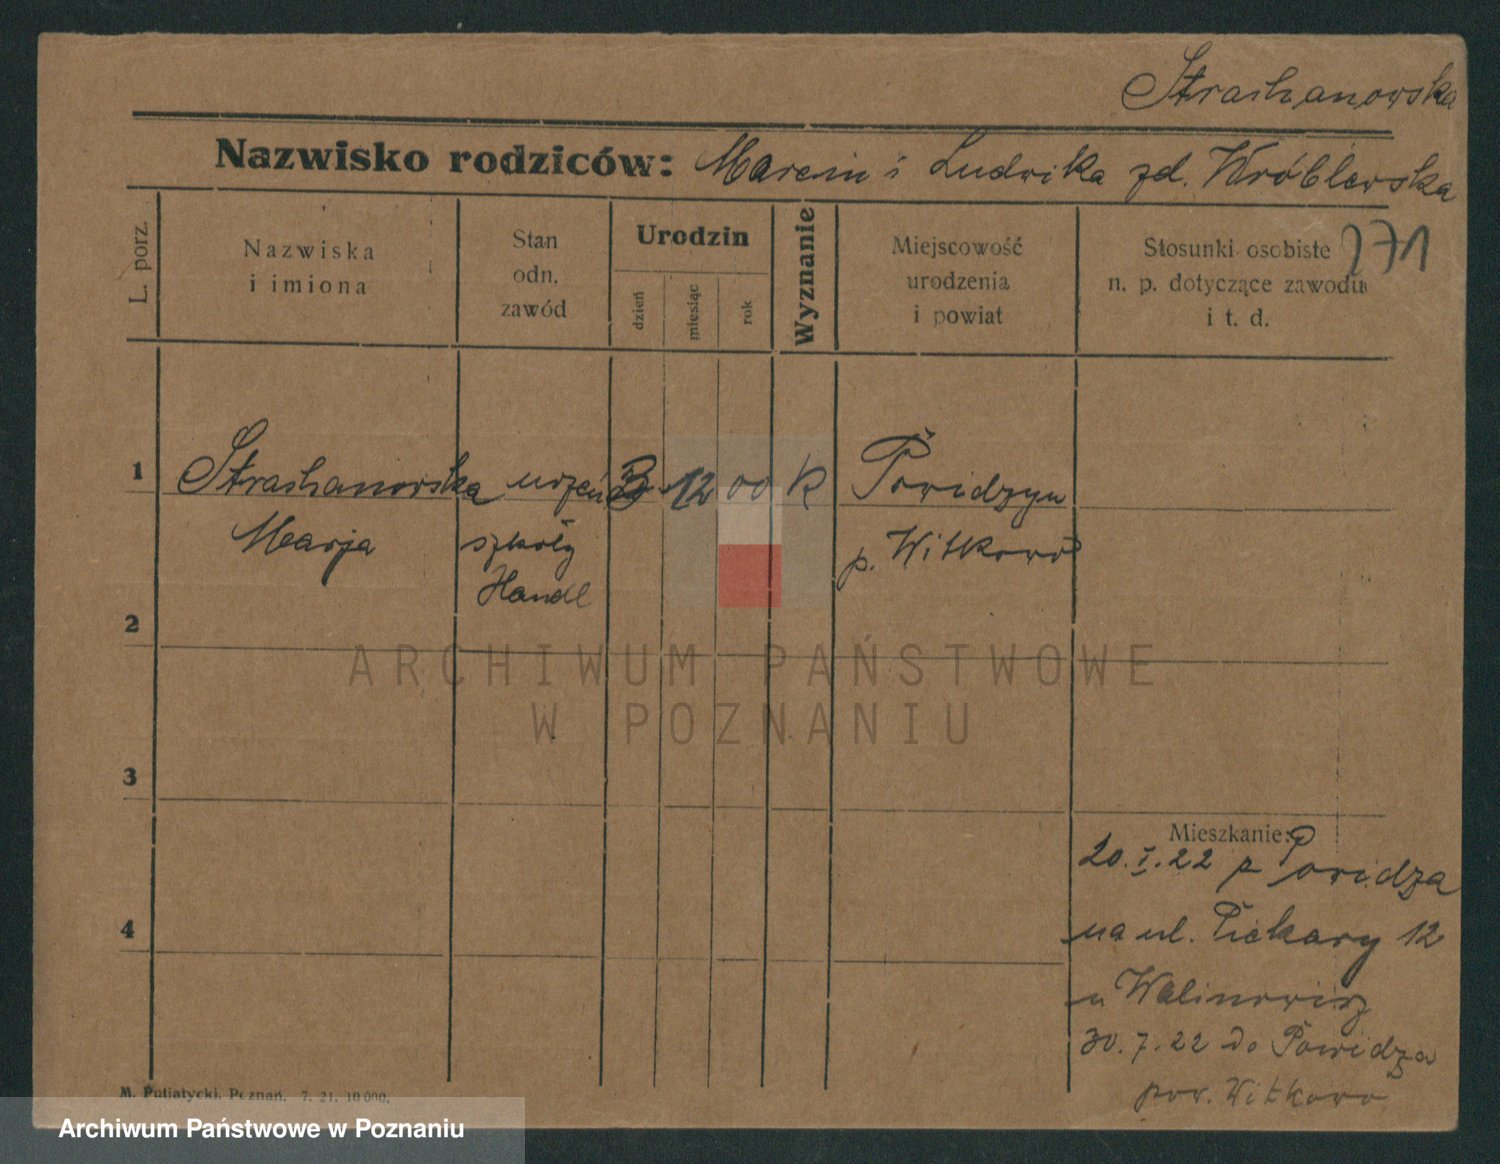 Strashanowska
Nazwisko rodziców: Marcin i Ludwika zd. Wróblewska
L. porz.
Nazwiska
i imiona
Stan
odn.
zawód
Urodzin
dzień
miesiąc
rok
Wyznanie
Miejscowość
urodzenia
i powiat
Stosunki osobiste
n. p. dotyczące zawodu
i t. d.
271
1 Strashanowska uczeń 3 12 00 K Powidzyn
Marja szkoły p. Witkowo
Handl
2
ARCHIWUM PAŃSTWOWE
W POZNANIU
3
Mieszkanie:
20.I.22 z Powidza
4
na ul. Piekary 12
u Walinowicz
30.7.22 do Powidza
pow. Witkowo
M. Putiatycki, Poznań. 7. 21. 10 000.
Archiwum Państwowe w Poznaniu